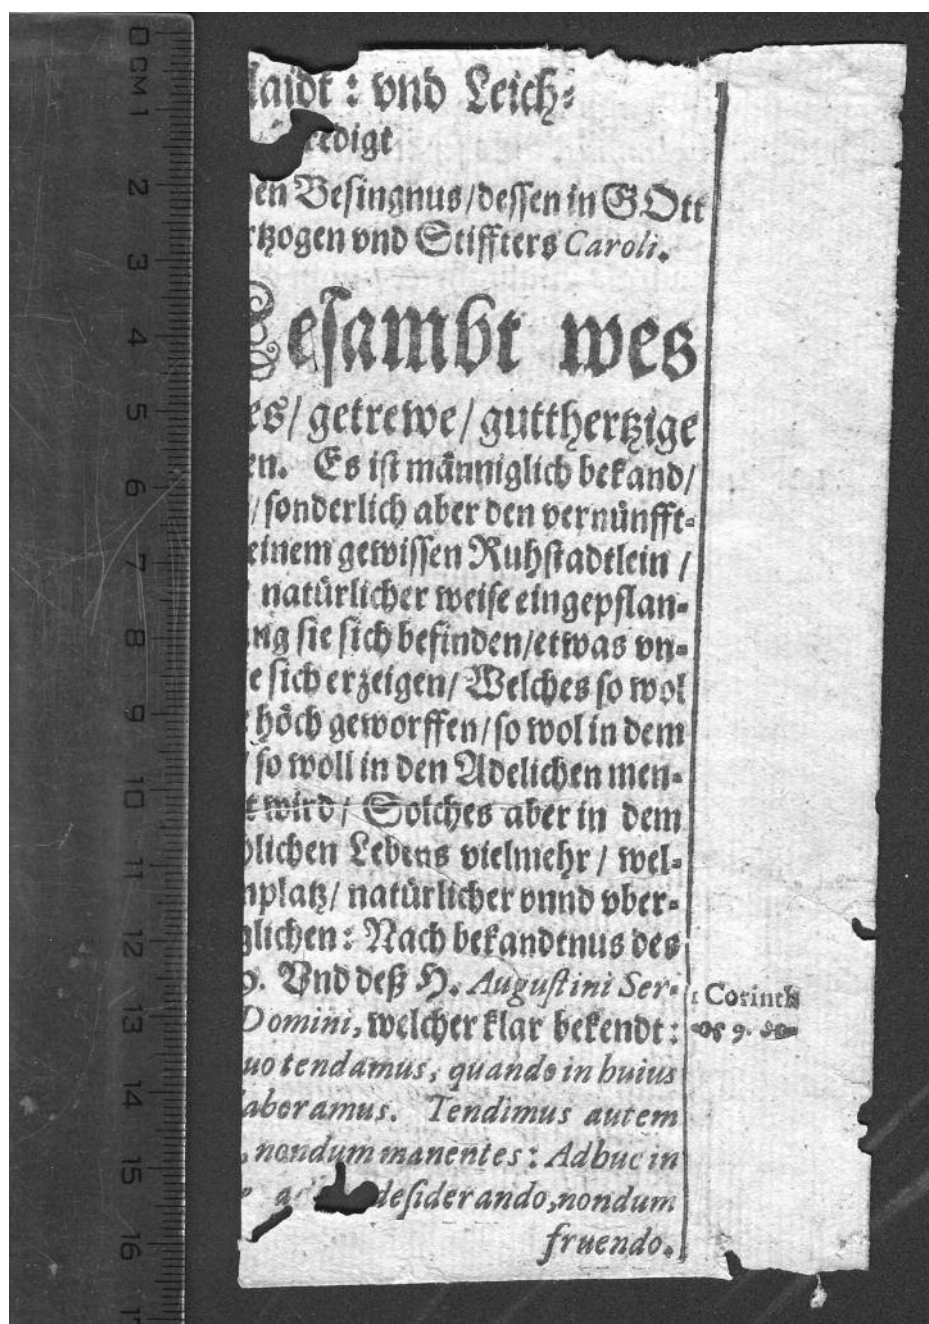 laidt : vnd Leich⸗
redigt
en Besingnus/dessen in GOtt
rtzogen vnd Stiffters Caroli.
Gesambt wes
es/ getrewe/ gutthertzige
en. Es ist männiglich bekand/
/ sonderlich aber den vernünfft⸗
einem gewissen Ruhstadtlein /
natürlicher weise eingepflan⸗
sie sich befinden/etwas vn⸗
e sich erzeigen/ Welches so wol
höch geworffen/so wol in dem
so woll in den Adelichen men⸗
t wird/ Solches aber in dem
lichen Lebens vielmehr / wel⸗
nplatz/ natürlicher vnnd vber⸗
glichen: Nach bekandtnus des
9. Vnd deß H. Augustini Ser⸗
1 Corinth
Domini, welcher klar bekendt:
9.
uo tendamus, quando in huius
aboramus. Tendimus autem
, nondum manentes: Adhuc in
desiderando, nondum
fruendo.